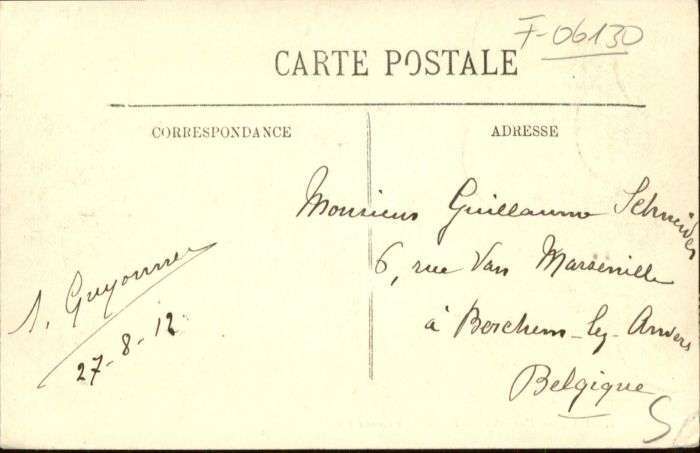 F-06130
CARTE POSTALE
CORRESPONDANCE
ADRESSE
Monsieur Guillaume Schneider
6, rue Van
à Berchem-lez-Anvers
Belgique
27-8-12